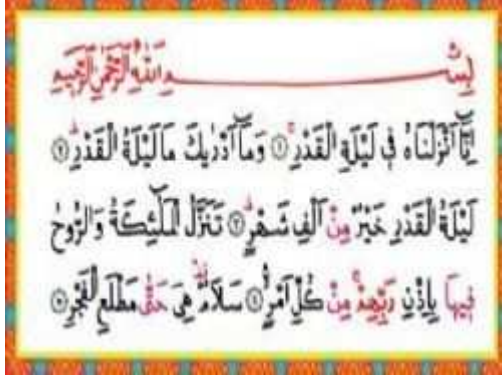 بِسْمِ اللّٰهِ الرَّحْمٰنِ الرَّحِيمِ
اِنَّٓا اَنْزَلْنَاهُ ف۪ي لَيْلَةِ الْقَدْرِۚ ﴿١﴾ وَمَٓا اَدْرٰيكَ مَا لَيْلَةُ الْقَدْرِۜ ﴿٢﴾
لَيْلَةُ الْقَدْرِ خَيْرٌ مِنْ اَلْفِ شَهْرٍۜ ﴿٣﴾ تَنَزَّلُ الْمَلٰٓئِكَةُ وَالرُّوحُ
ف۪يهَا بِاِذْنِ رَبِّهِمْۚ مِنْ كُلِّ اَمْرٍۙ ﴿٤﴾ سَلَامٌ۠ هِيَ حَتّٰى مَطْلَعِ الْفَجْرِ ﴿٥﴾